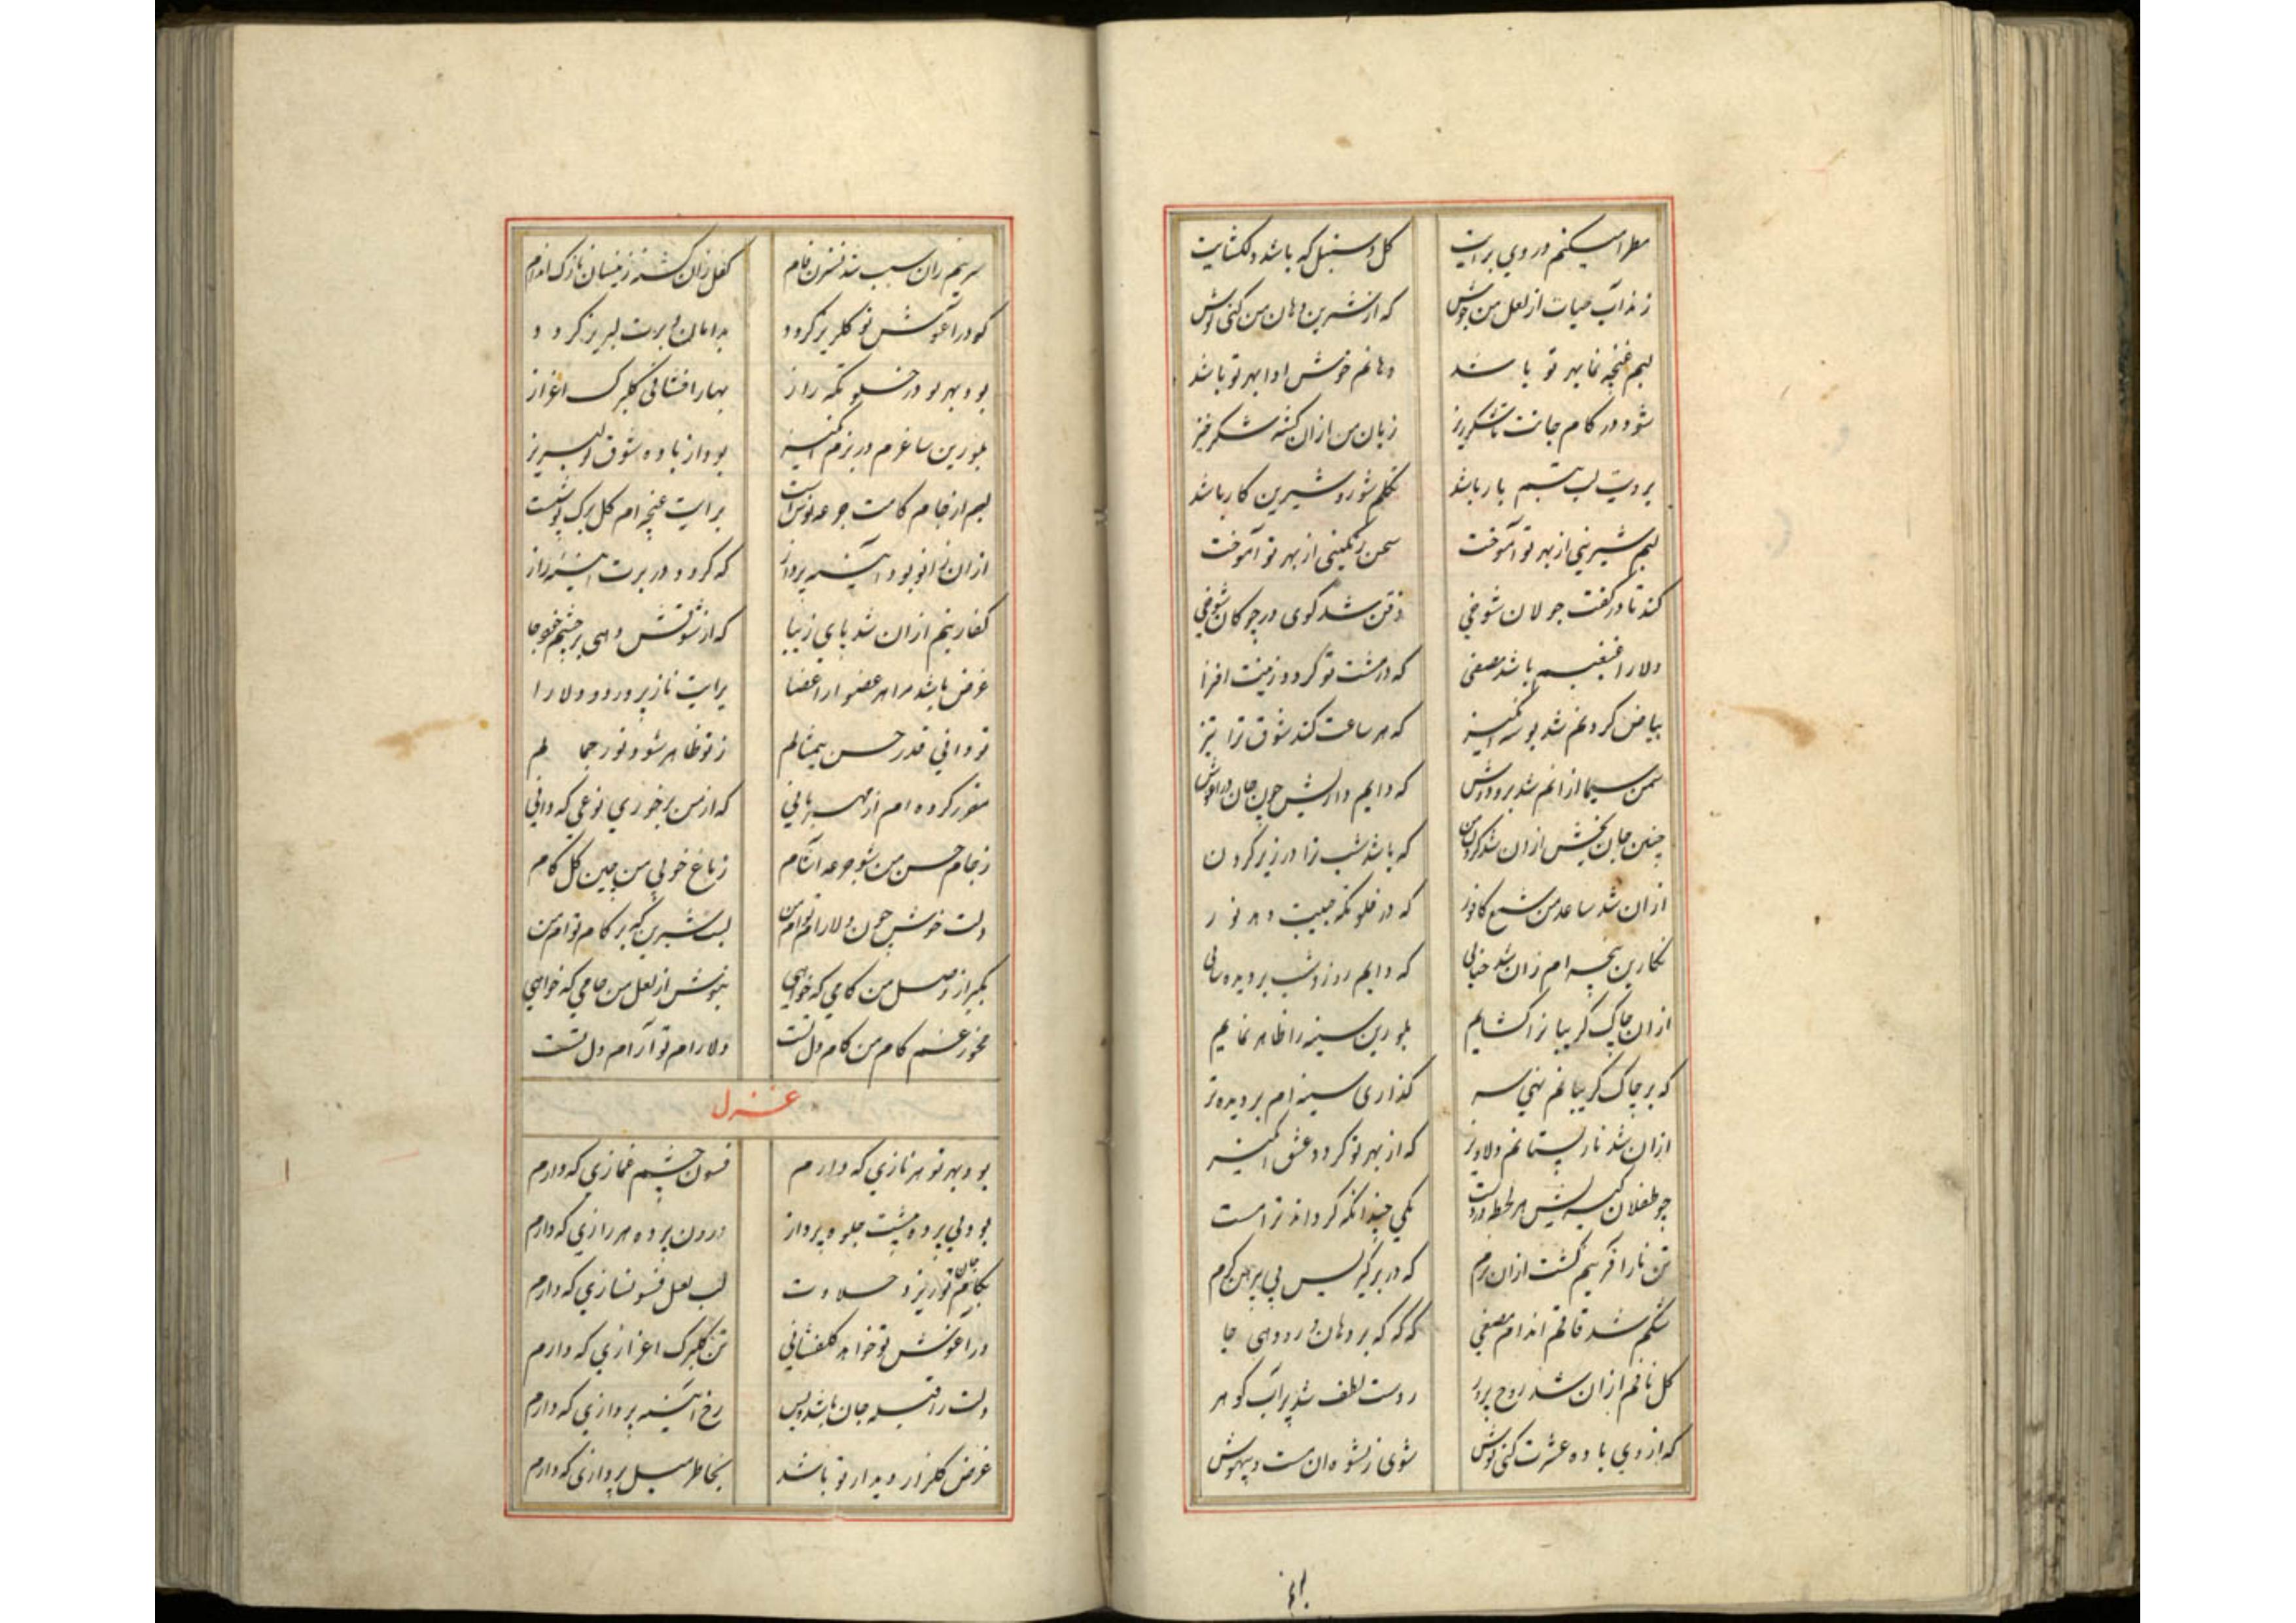 معطر میکنم در وی برایت گل و سنبل که باشد دلکشایت
زند آب حیات از لعل من جوش که از شیرین دهان من کنی نوش
لبم غنچه نما بهر تو باشد دهانم خوش ادا بهر تو باشد
شود در کام جانت تا شکرریز زبان من ازان گشته شکرخیز
برویت لب تبسم بار باشد تکلم شور و شیرین کار باشد
لبم شیرینی از بهر تو آموخت سخن رنگینی از بهر تو آموخت
کند تا در کفت جولان شوخی ذقن شد گوی در چوکان شوخی
دلارا غبغبم باشد مصفی که در مشت تو کردد زینت افزا
بیاض کردنم شد بوسه انگیز که هر ساعت کند شوق ترا تیز
سمن سیما ازانم شد بر و دوش که دایم داریش چون جان در آغوش
چنین جان بخش ازان شد کردن من که باشد شب ترا در زیر کردن
ازان شد ساعد من شمع کافور که در خلوتکه جیبت دهد نور
نکارین پنجه ام زان شد حنایی که دایم روز و شب بر دیده سایی
ازان چاک کریبانرا کشایم بلورین سینه را ظاهر نمایم
که بر چاک کریبانم نهی سر کذاری سینه ام بر دیده تر
ازان شد نار پستانم دلاویز که از بهر تو کردد عشق انگیز
چو طفلان کیریش هر لحظه در دست مکی چندانکه کرداند ترا مست
تن نازآفرینم کشت ازان نرم که در بر کیریش بی پیرهن کرم
شکم شد قاقم اندام مصفی که که که بر دهان و رو دهی جا
کل نافم ازان شد روح پرور ز دست لطف شد پر آب کوهر
که از وی باده عشرت کنی نوش شوی از نشوه ان مست و بیهوش
سرینم زان سبب شد نسترن فام کفل زان کشته زینسان نازک اندام
که در آغوش تو کلریز کردد بدامان و برت لبریز کردد
بود بهر تو در خلوتکه راز بهار افشانی کلبرک اعزاز
بلورین ساغرم در بزم انگیز بود از باده شوق تو لبریز
لبم از جام کامت جرعه نوش است برایت غنچه ام کل برک پوش است
ازان زانو بود آیینه پرداز که کردد در برت آیینه راز
کف ازینم ازان شد پای زیبا که از شوقش دهی بر چشم خود جا
غرض باشد مرا هر عضو از اعضا برایت نازپرورد و دلارا
تو دانی قدر حسن بیمثالم ز تو ظاهر شود نور جمالم
مقرر کرده ام از مهربانی که از من برخوری نوعی که دانی
ز جام حسن من شو جرعه آشام ز باغ خوبی من چین کل کام
دلت خوش چون دلارام توام من لبت شیرین که بر کام توام من
بکیر از وصل من کامی که خواهی بنوش از لعل من جامی که خواهی
مخور غم کام من کام دل تست دلارام تو آرام دل تست
غزل
بود بهر تو هر نازی که دارم فسون چشم غمازی که دارم
بود بی پرده پیشت جلوه پرداز درون پرده هر رازی که دارم
بکام جان تو ریزد حلاوت لب لعل فسونسازی که دارم
در آغوش تو خواهد کلفشانی تن کلبرک اعزازی که دارم
دلت را قبله جان باشد و بس رخ آیینه پردازی که دارم
غرض کلزار دیدار تو باشد بخاطر میل پروازی که دارم